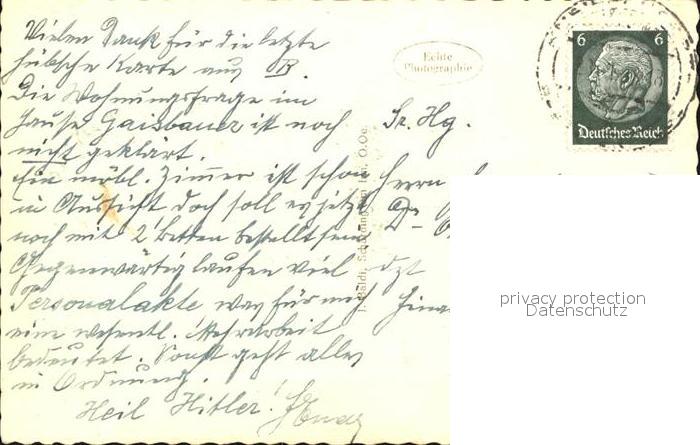 Vielen Dank für die letzte
hübsche Karte aus B.
Die Wohnungsfrage im
Hause Gaisbauer ist noch
nicht geklärt.
Ein möbl. Zimmer ist schon
in Aussicht doch soll es jetzt
noch mit 2 Betten bestellt sein
Gegenwärtig laufen viel
Personalakte was für mich
eine wesentl. Mehrarbeit
bedeutet. Sonst geht alles
in Ordnung.
Heil Hitler!
Echte
Photographie
6 6
Deutsches Reich
Sr. Hg.
Herrn
Dr
privacy protection
Datenschutz